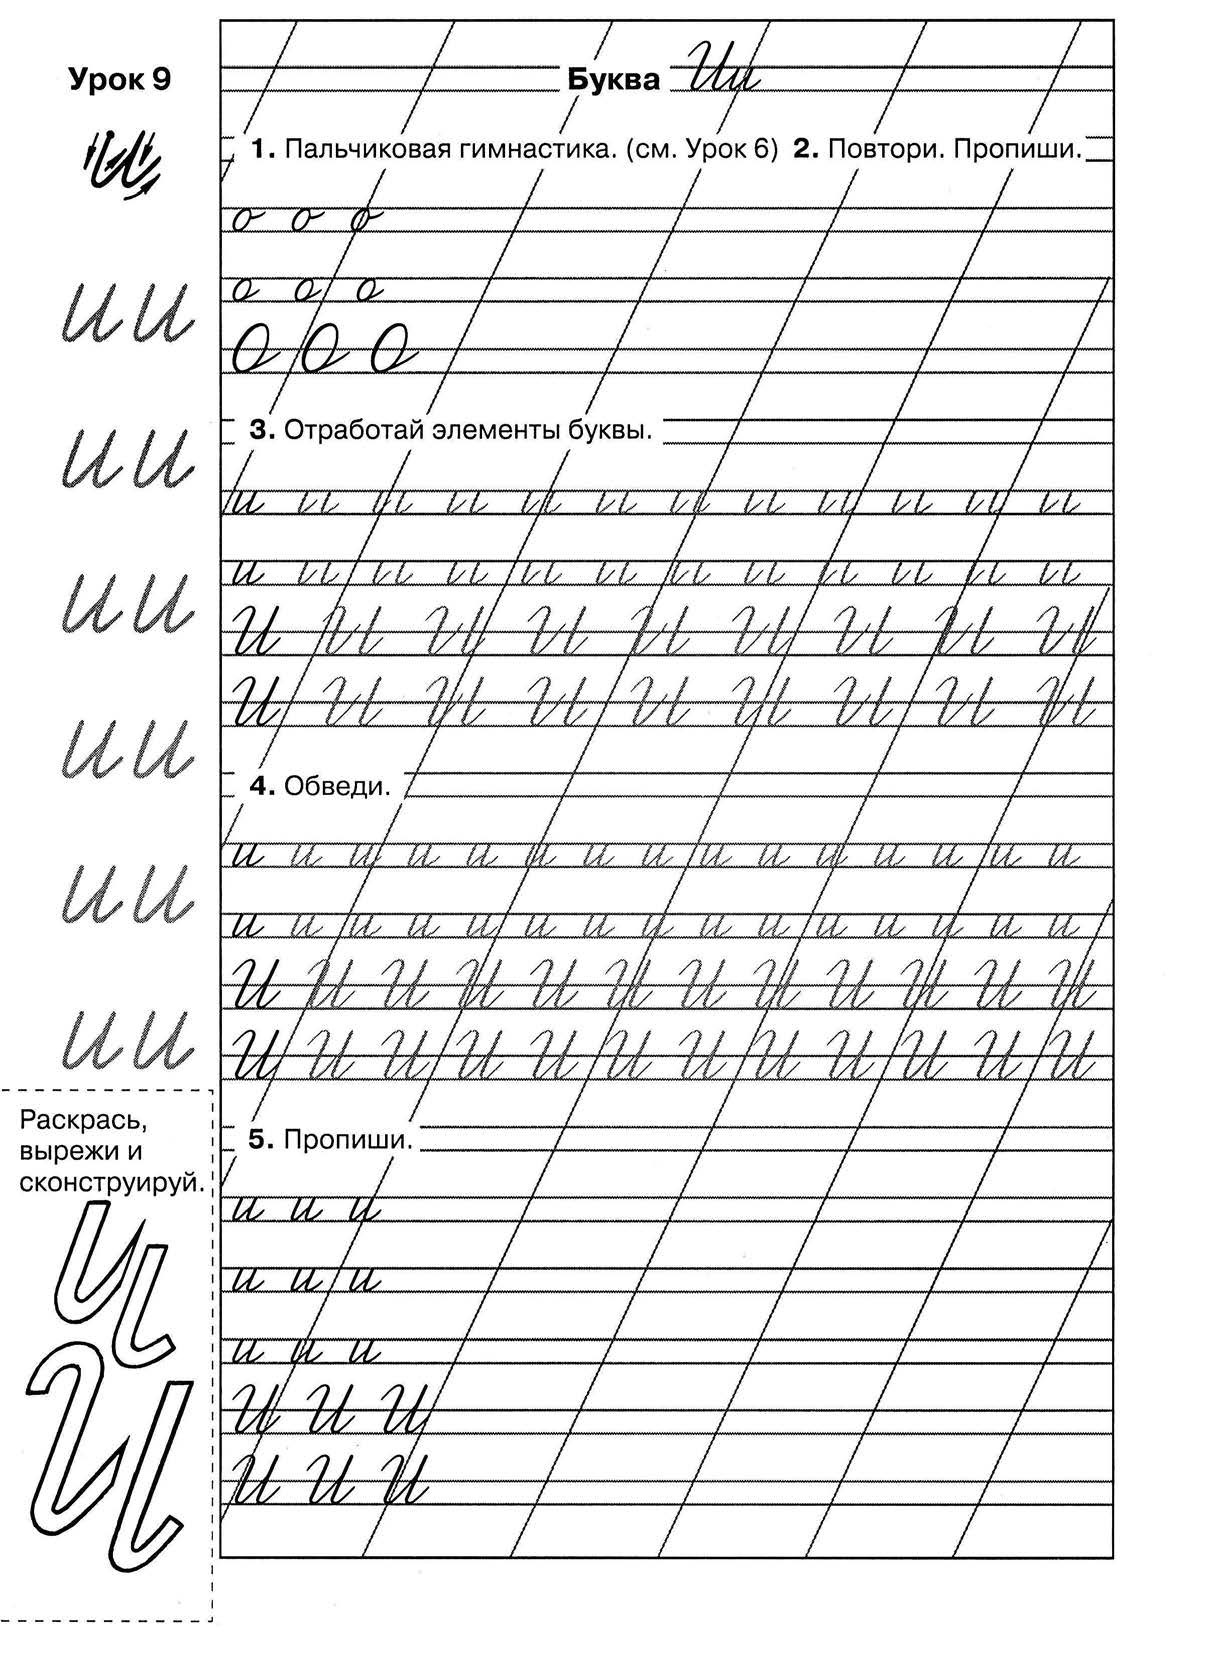 Урок 9
Буква Ии
1. Пальчиковая гимнастика. (см. Урок 6) 2. Повтори. Пропиши.
о о о
о о о
О О О
и и
и и
и и
и и
и и
и и
3. Отработай элементы буквы.
и и и и и и и и и и и и
и и и и и и и и и и и и
И И И И И И И И И
И И И И И И И И И
4. Обведи.
и и и и и и и и и и и и и и и
и и и и и и и и и и и и и и и
И И И И И И И И И И И И
И И И И И И И И И И И И
5. Пропиши.
и и и
и и и
и и и
И И И
И И И
Раскрась,
вырежи и
сконструируй.
и
И